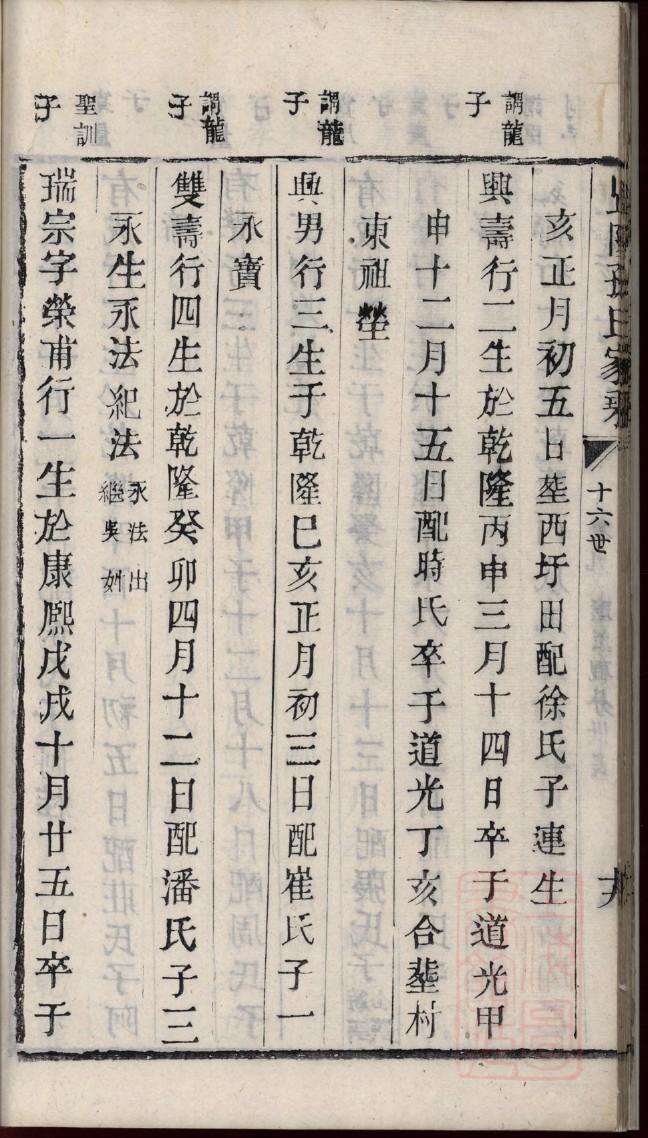 十六世
亥正月初五日塟西圩田配徐氏子連生
謂龍子
興壽行二生於乾隆丙申三月十四日卒于道光甲
申十二月十五日配時氏卒于道光丁亥合塟村
東祖塋
謂龍子
興男行三生于乾隆巳亥正月初三日配崔氏子一
永寶
謂龍子
雙壽行四生於乾隆癸卯四月十二日配潘氏子三
永生永法紀法永法出繼吳姓
聖訓子
瑞宗字榮甫行一生於康熈戊戌十月廿五日卒于